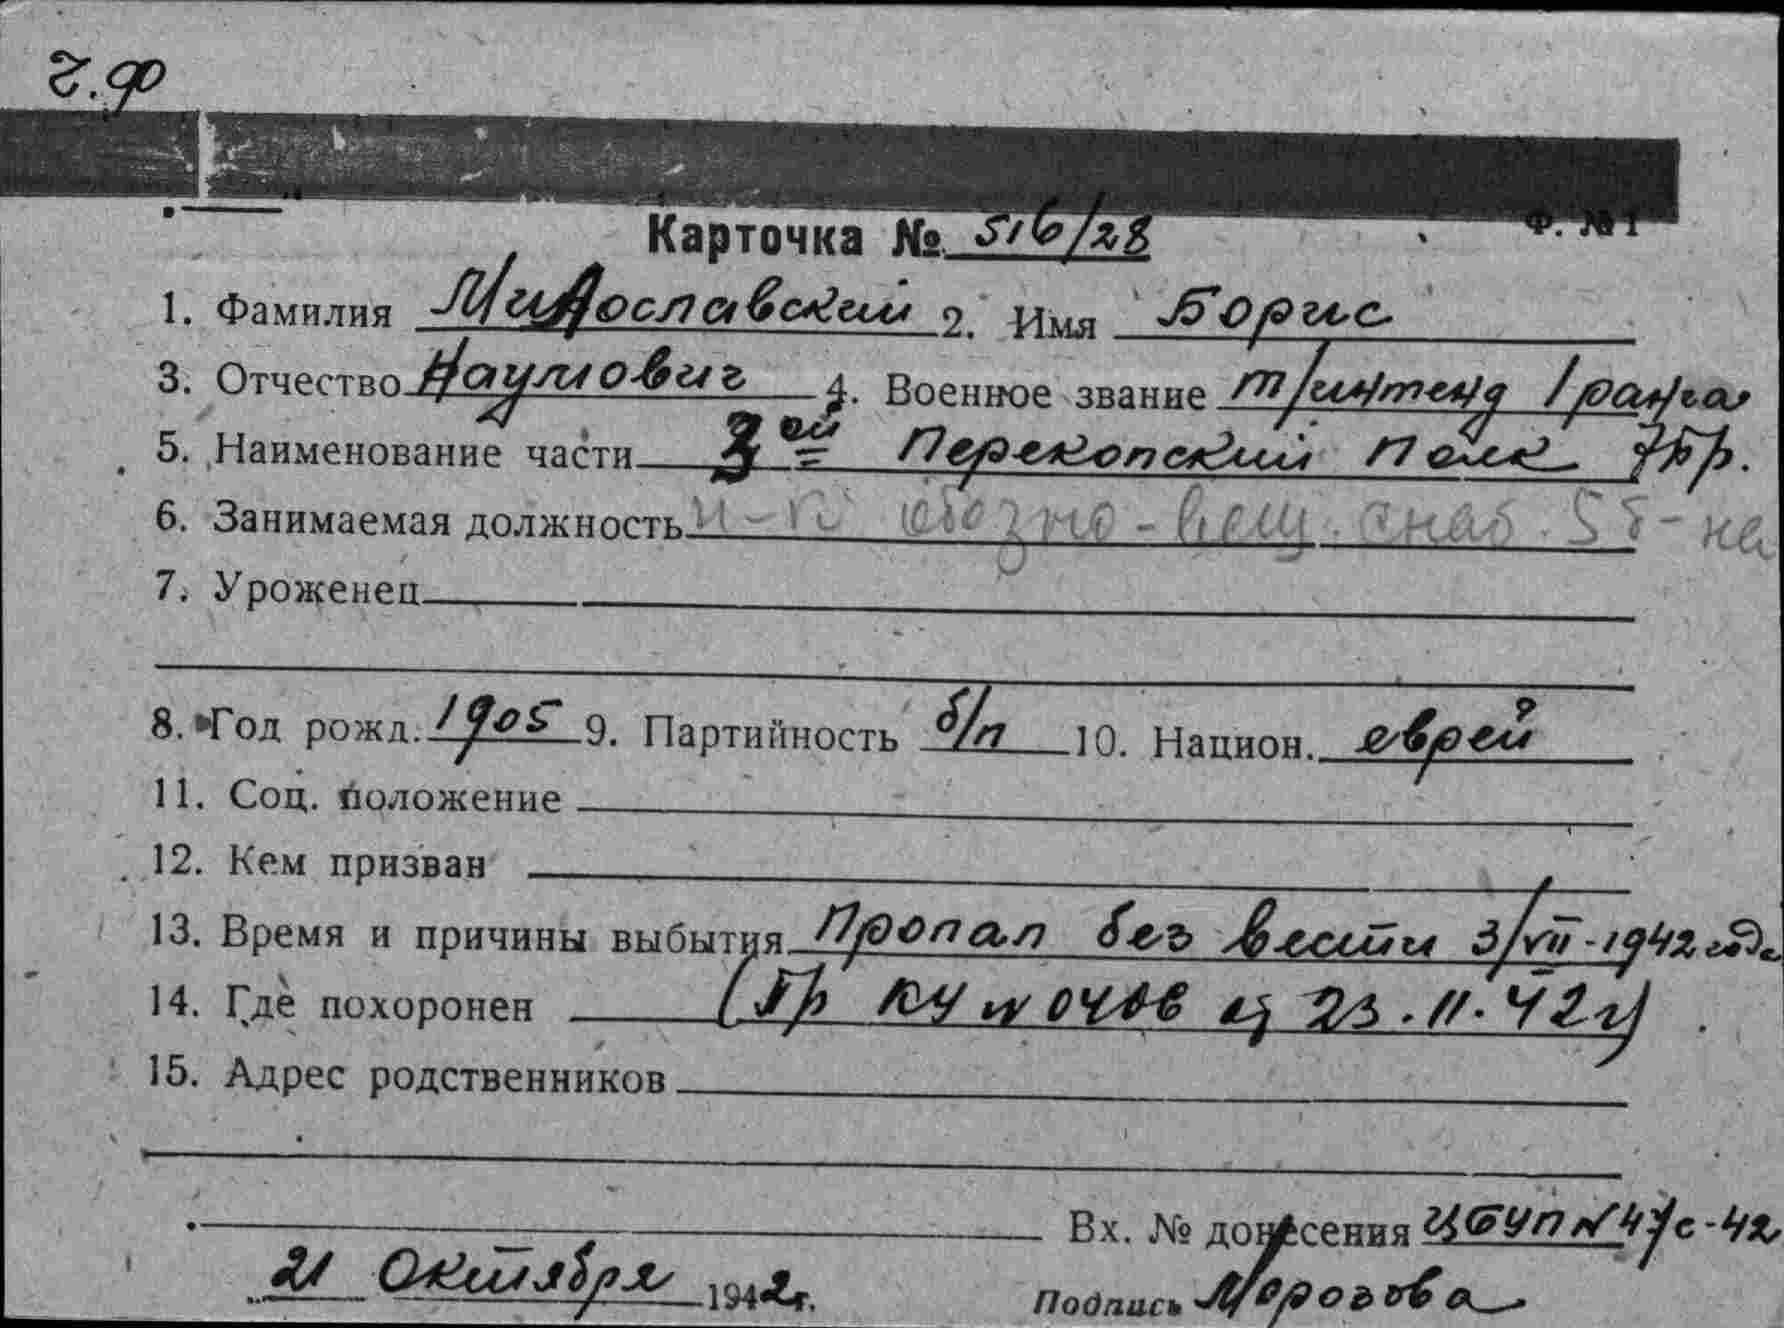 ч.ф
Ф. №1
Карточка № 516/28
1. Фамилия Милославский 2. Имя Борис
3. Отчество Наумович 4. Военное звание т/интенд 1 ранга
5. Наименование части 3ой Перекопский полк 7бр.
6. Занимаемая должность н-к обозно-вещ. снаб. 5 б-на
7. Уроженец
8. Год рожд. 1905 9. Партийность б/п 10. Национ. еврей
11. Соц. положение
12. Кем призван
13. Время и причины выбытия Пропал без вести 3/VII-1942 года
14. Где похоронен (Пр КУ № 0406 от 23.11.42г)
15. Адрес родственников
Вх. № донесения 47с-42
21 Октября 1942г.
Подпись Морозова